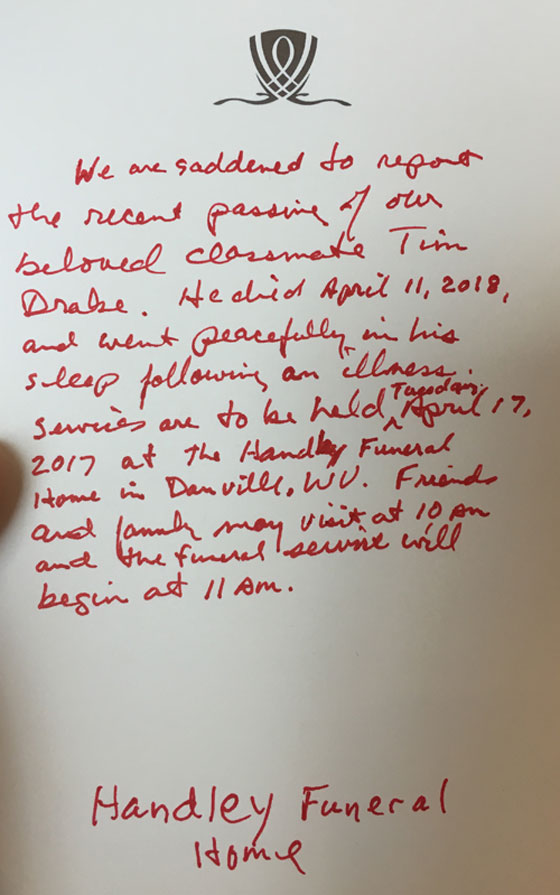 We are saddened to report
the recent passing of our
beloved classmate Tim
Drake. He died April 11, 2018,
and went peacefully in his
sleep following an illness.
Services are to be held, Tuesday, April 17,
2017 at the Handley Funeral
Home in Danville, WV. Friends
and family may visit at 10 am
and the funeral service will
begin at 11 am.
Handley Funeral
Home